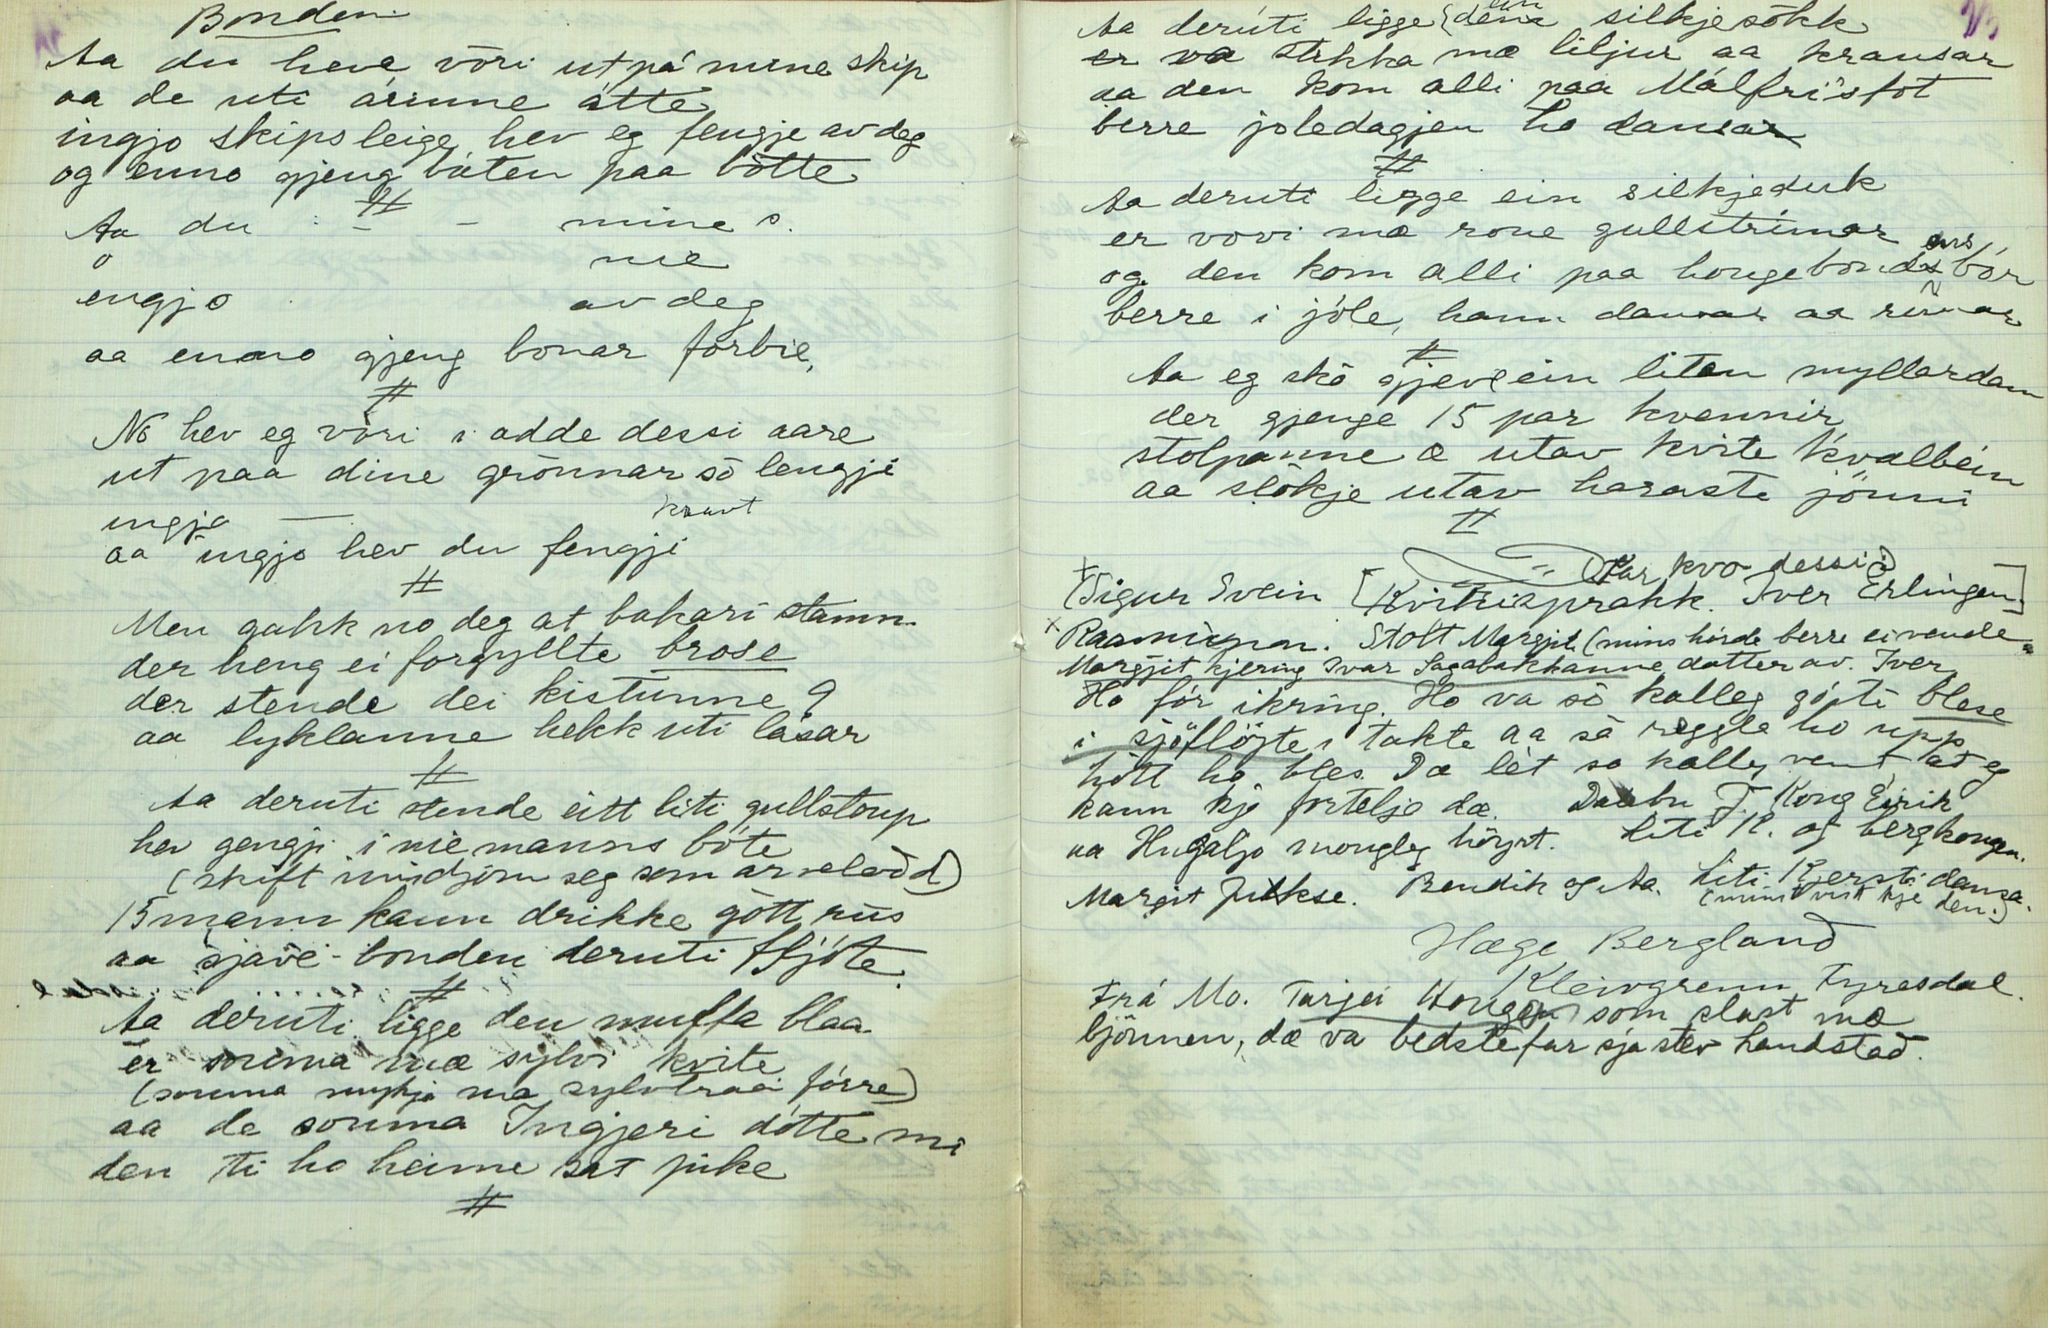 Bonden
Aa du heve vòri ut pá mine skip
aa de uti árinne átte
ingjo skipsleige hev eg fengje av deg
og enno gjeng báten paa bòtte
#
Aa du - - mine s.
o nie
engjo av deg
aa enno gjeng bonar forbie,
#
No hev eg vòri i adde dessi aare
ut paa dine grònnar sò lengji
ingjo — kravt
aa ingjo hev du fengji
#
Men gakk no deg at bakari stamn
der heng ei forgyllte brose
der stende dei kistunne 9
aa lyklanne hekk uti låsar
#
Aa deruti stende eitt liti gullstoup
hev gengji i nie manns bóte
(skift imidjom seg som arvelodd)
15 mann kann drikke gott rus
aa sjave-bonden deruti fljóte.
#
Aa deruti ligge den muffa blaa
er souma mæ sylvi kvite
(souma mykje mæ sylvtraai fórre)
aa de souma Ingjeri dótte mi
den ti ho heime sat pike
#
Aa deruti ligge (dene ein silkjesòkk
er va stikka mæ liljur aa kransar
aa den kom alli paa Málfris fot
berre joledagjen ho dansar
#
Aa deruti ligge ein silkjeduk
er vovi mæ roue gullstrimar
og den kom alli paa hougebondens bór
berre i jóle, hann dansar aa rimar
#
Aa eg skò gjeve ein liten myllardam
der gjenge 15 par kvennir
stolpanne æ utav kvite kvalbéin
aa slòkje utav haraste jönni
#
(Kar kvo dessi)
+ (Sigur Svein [Kvikisprakk. Iver Erlingen.]
x Raamunen. Stolt Margjit (mins hörde berre ei vende
Margjit kjering Ivar Sagabakkanne dotter av. Iver
Ho fór ikring. Ho va sò kalleg góti blese
i sjöflöjte i takte aa så reggla ho upp
hòtt ho bles. Dæ lét so kalleg vent at eg
kann kje fortelje dæ. Kong Eirik
aa Hugaljo mongleg höyrt. Liti K. og bergkongen.
Margit Julkse. Bendik og Aa. Liti Kersti dansa.
(mins vist kje den.)
Hæge Bergland
Kleivgrenn Fyresdal.
Frá Mo. Tarjei Hougen som slast mæ
bjönnen, dæ va bedstefar sjá stev handstad.